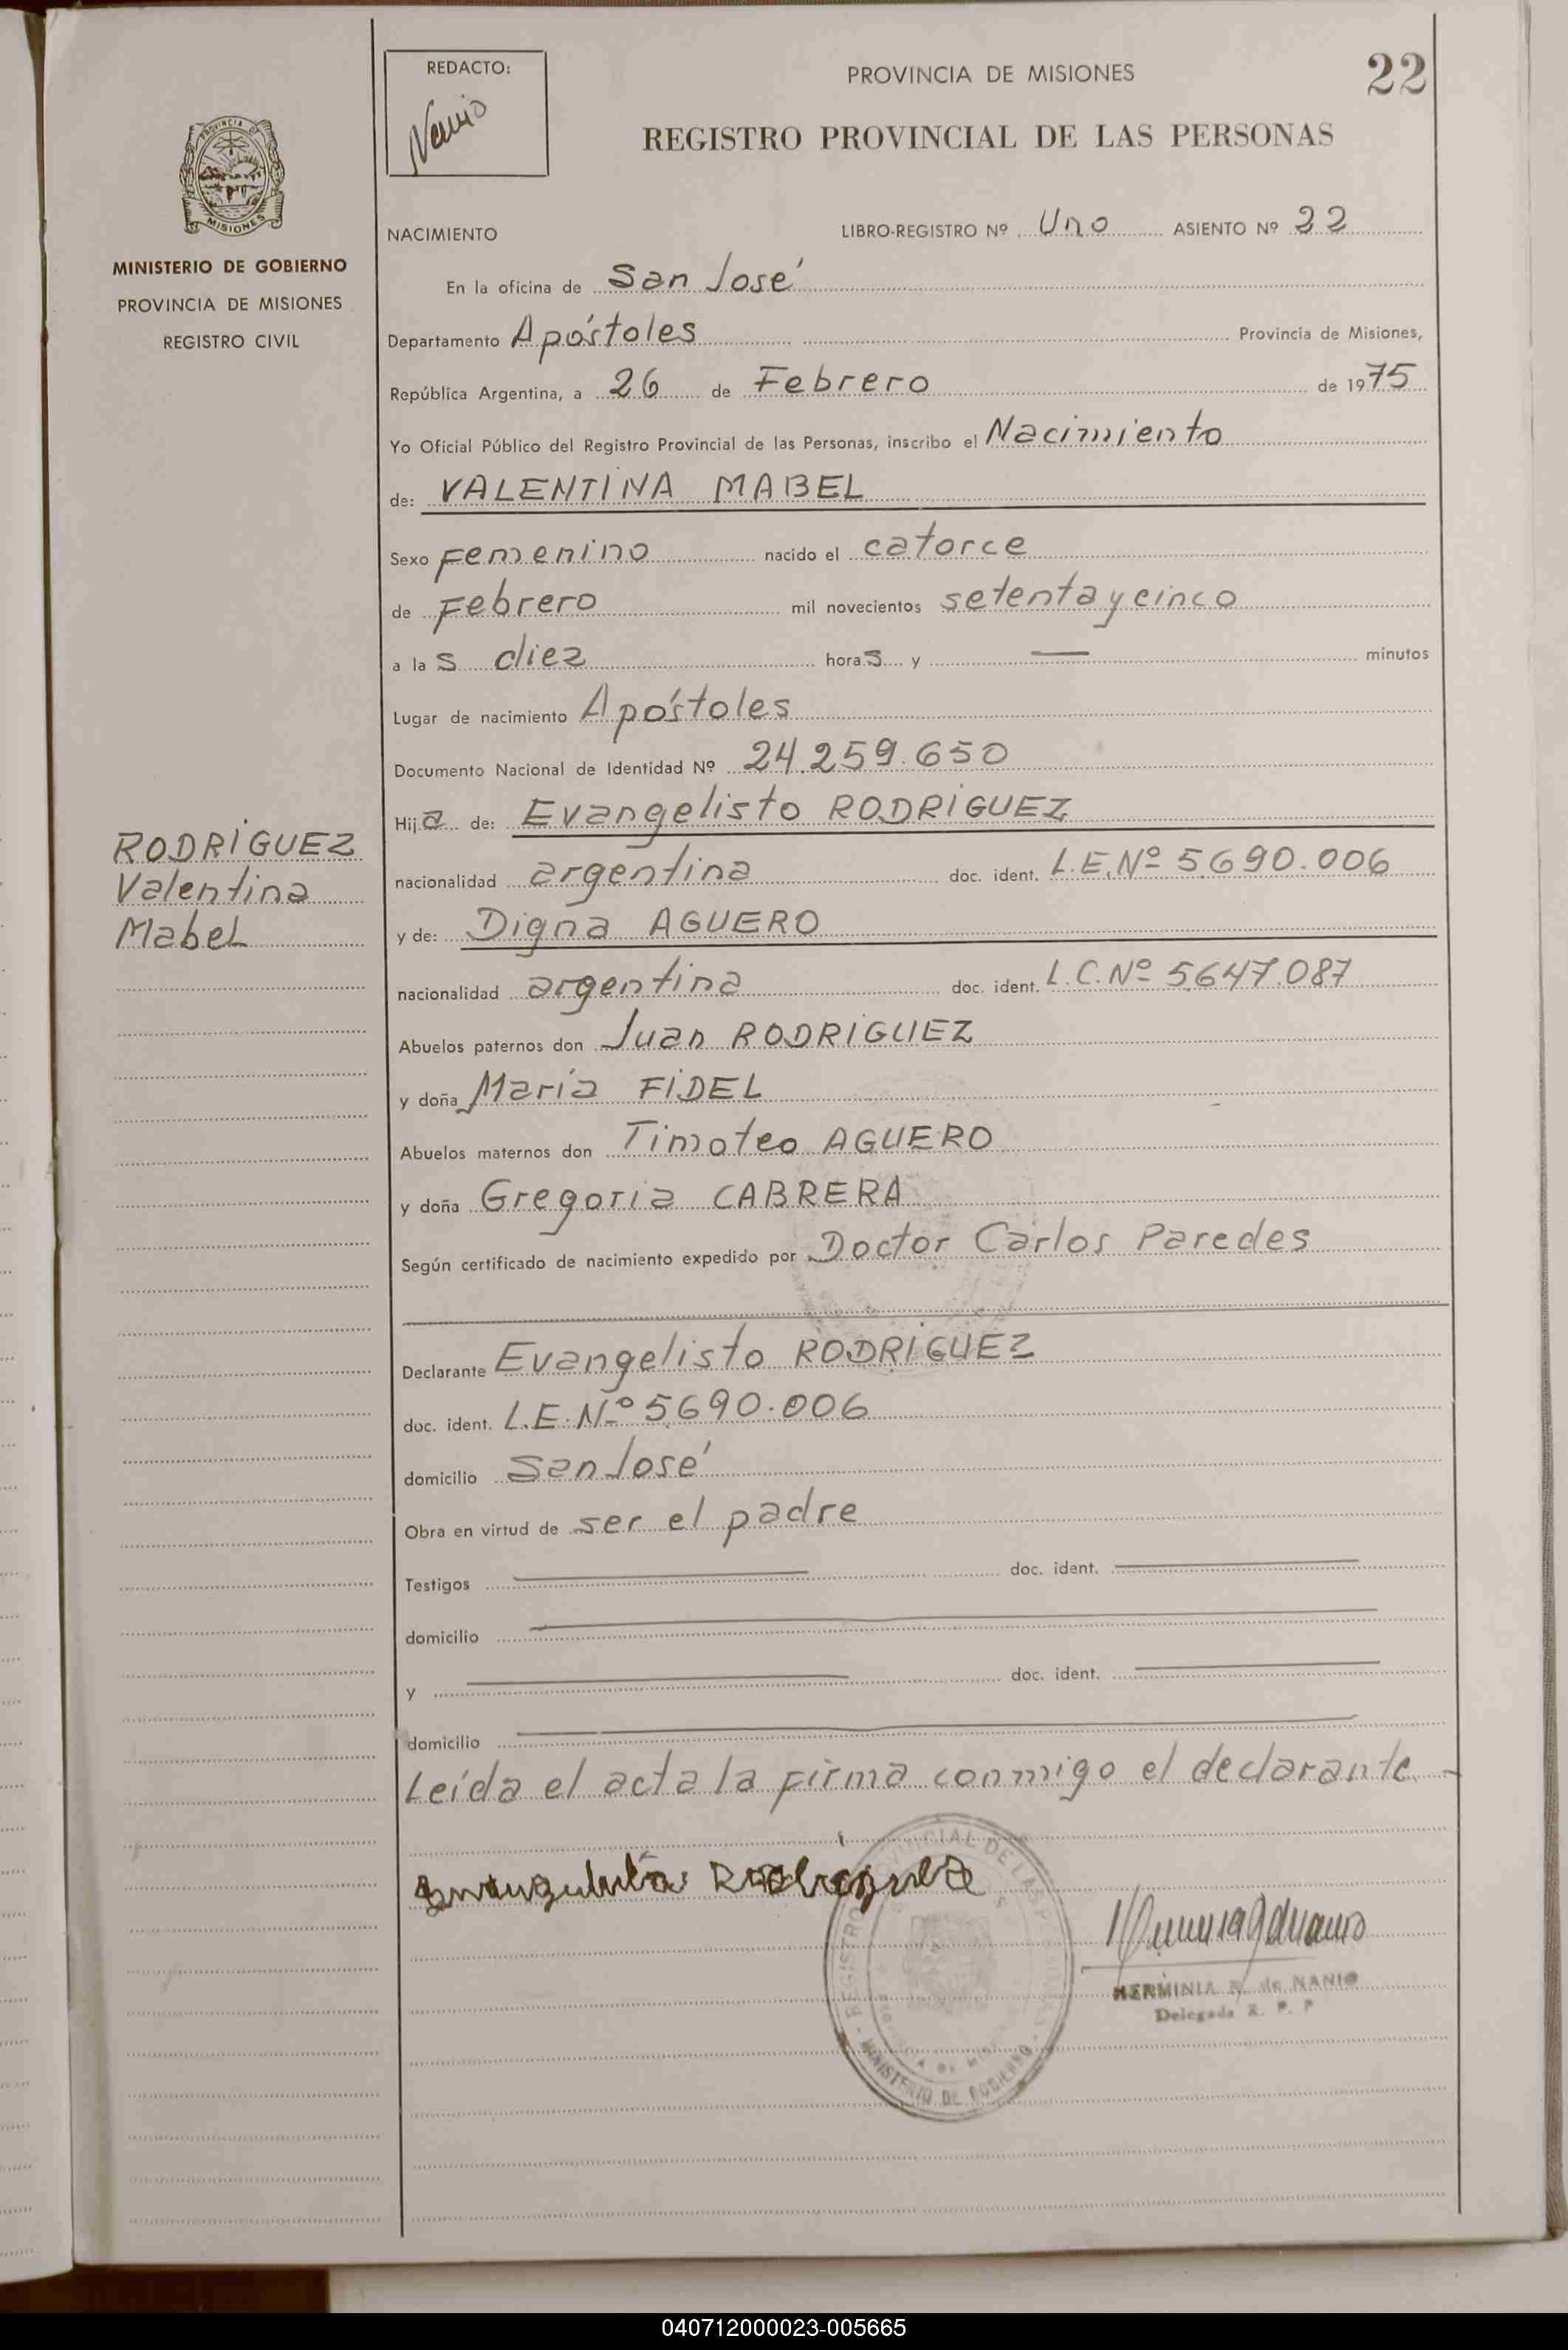 REDACTO:
Nanio
PROVINCIA DE MISIONES
22
REGISTRO PROVINCIAL DE LAS PERSONAS
PROVINCIA DE
MISIONES
MINISTERIO DE GOBIERNO
PROVINCIA DE MISIONES
REGISTRO CIVIL
NACIMIENTO LIBRO-REGISTRO Nº Uno ASIENTO Nº 22
En la oficina de San José
Departamento Apóstoles Provincia de Misiones,
República Argentina, a 26 de Febrero de 1975
Yo Oficial Público del Registro Provincial de las Personas, inscribo el Nacimiento
de: VALENTINA MABEL
Sexo Femenino nacido el catorce
de Febrero mil novecientos setenta y cinco
a las diez horas y — minutos
Lugar de nacimiento Apóstoles
Documento Nacional de Identidad Nº 24.259.650
Hija de: Evangelisto RODRIGUEZ
RODRIGUEZ
Valentina
Mabel
nacionalidad argentina doc. ident. L.E.Nº 5.690.006
y de: Digna AGUERO
nacionalidad argentina doc. ident. L.C.Nº 5.647.087
Abuelos paternos don Juan RODRIGUEZ
y doña María FIDEL
Abuelos maternos don Timoteo AGUERO
y doña Gregoria CABRERA
Según certificado de nacimiento expedido por Doctor Carlos Paredes
Declarante Evangelisto RODRIGUEZ
doc. ident. L.E.Nº 5.690.006
domicilio San José
Obra en virtud de ser el padre
Testigos doc. ident.
domicilio
y doc. ident.
domicilio
Leída el acta la firma conmigo el declarante.-
Rodriguez
HERMINIA de NANIO
Delegada R. P. P
MINISTERIO DE GOBIERNO
040712000023-005665